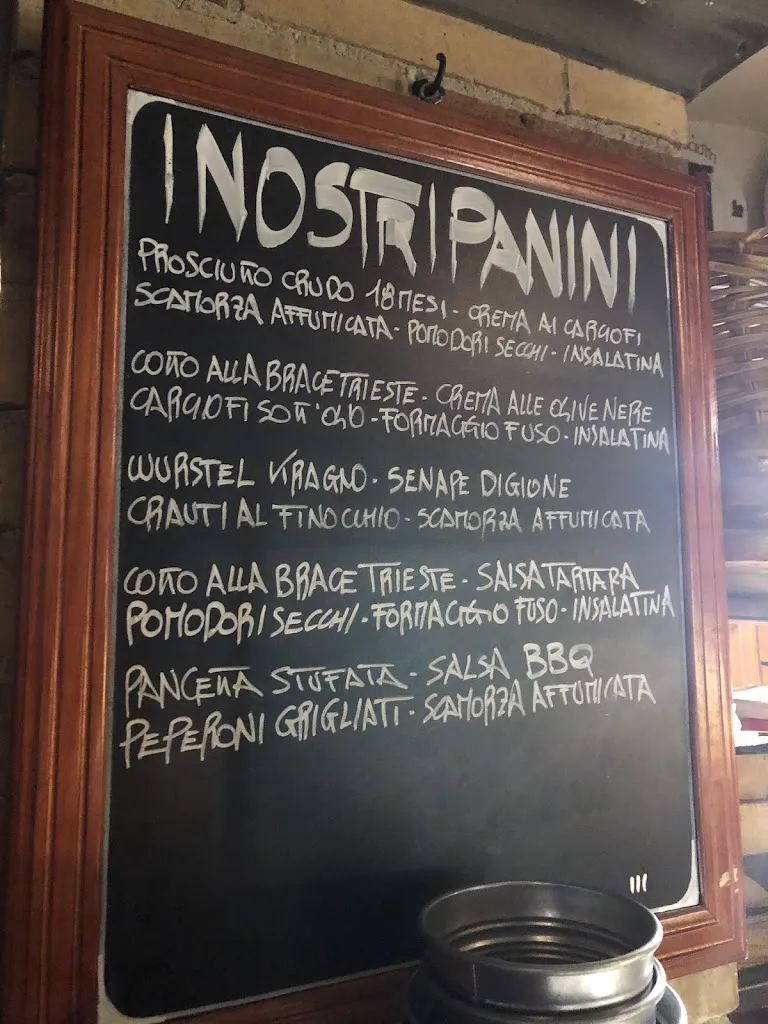 I NOSTRI PANINI
PROSCIUTTO CRUDO 18 MESI - CREMA AI CARCIOFI
SCAMORZA AFFUMICATA - POMODORI SECCHI - INSALATINA
COTTO ALLA BRACE TRIESTE - CREMA ALLE OLIVE NERE
CARCIOFI SOTT'OLIO - FORMAGGIO FUSO - INSALATINA
WURSTEL VIRAGNO - SENAPE DIGIONE
CRAUTI AL FINOCCHIO - SCAMORZA AFFUMICATA
COTTO ALLA BRACE TRIESTE - SALSA TARTARA
POMODORI SECCHI - FORMAGGIO FUSO - INSALATINA
PANCETTA STUFATA - SALSA BBQ
PEPERONI GRIGLIATI - SCAMORZA AFFUMICATA